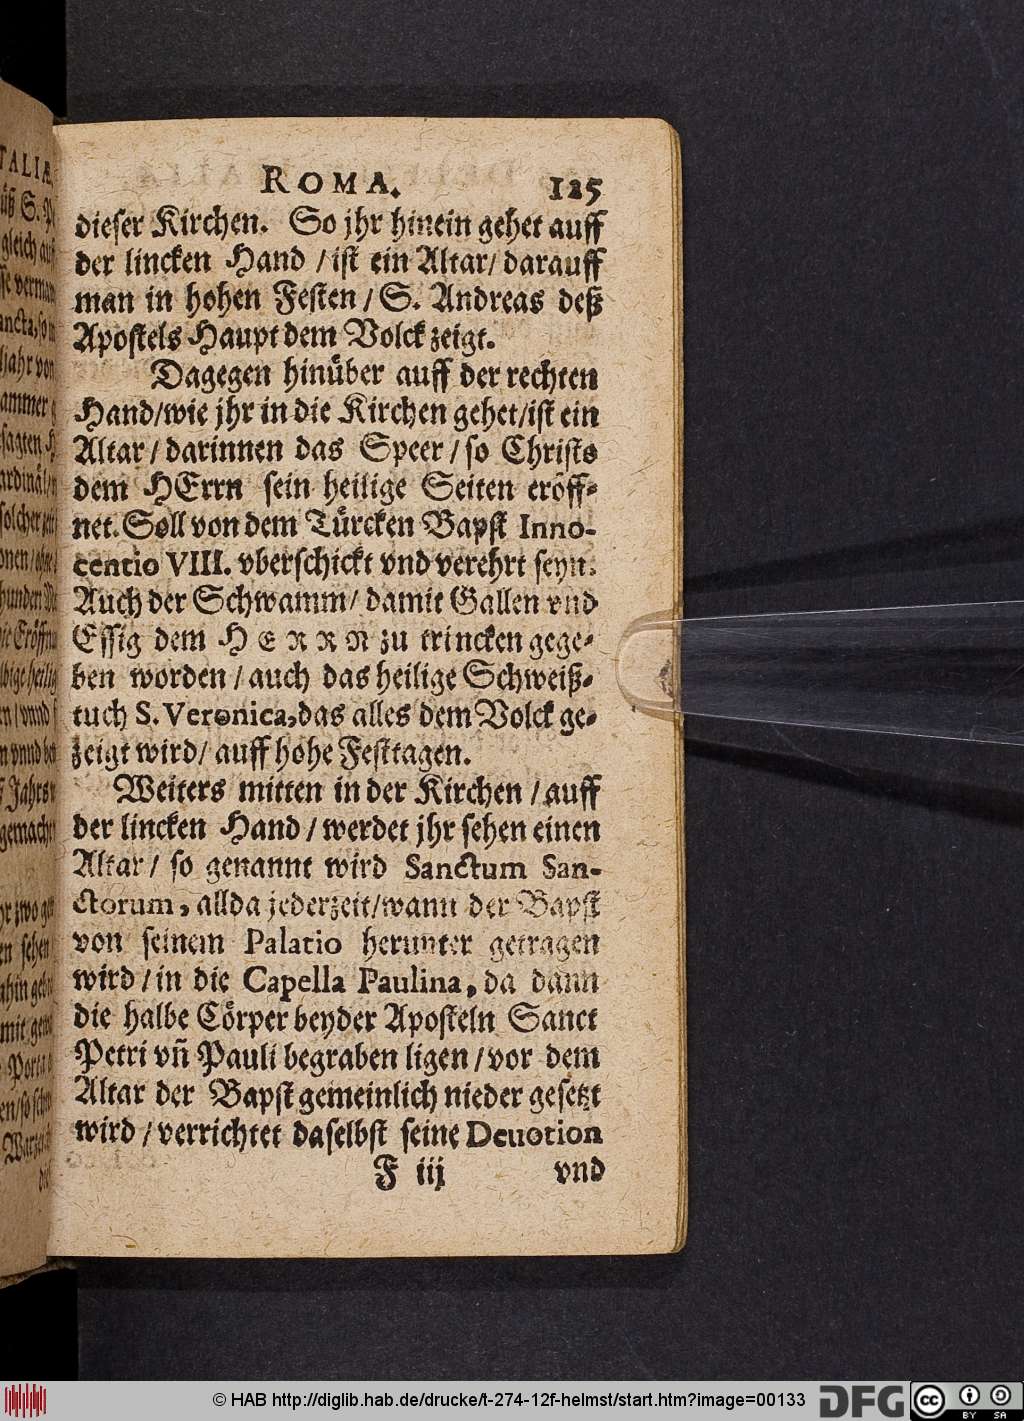 ROMA. 125
dieser Kirchen. So jhr hinein gehet auff
der lincken Hand / ist ein Altar / darauff
man in hohen Festen / S. Andreas deß
Apostels Haupt dem Volck zeigt.
Dagegen hinüber auff der rechten
Hand / wie jhr in die Kirchen gehet / ist ein
Altar / darinnen das Speer / so Christo
dem HErrn sein heilige Seiten eröff-
net. Soll von dem Türcken Bapst Inno-
centio VIII. vberschickt vnd verehrt seyn.
Auch der Schwamm / damit Gallen vnd
Essig dem HERRN zu trincken gege-
ben worden / auch das heilige Schweiß-
tuch S. Veronica, das alles dem Volck ge-
zeigt wird / auff hohe Festtagen.
Weiters mitten in der Kirchen / auff
der lincken Hand / werdet jhr sehen einen
Altar / so genannt wird Sanctum San-
ctorum, allda jederzeit / wann der Bapst
von seinem Palatio herunter getragen
wird / in die Capella Paulina, da dann
die halbe Cörper beyder Aposteln Sanct
Petri vñ Pauli begraben ligen / vor dem
Altar der Bapst gemeinlich nieder gesetzt
wird / verrichtet daselbst seine Deuotion
F iij vnd
© HAB http://diglib.hab.de/drucke/t-274-12f-helmst/start.htm?image=00133 DFG cc BY SA